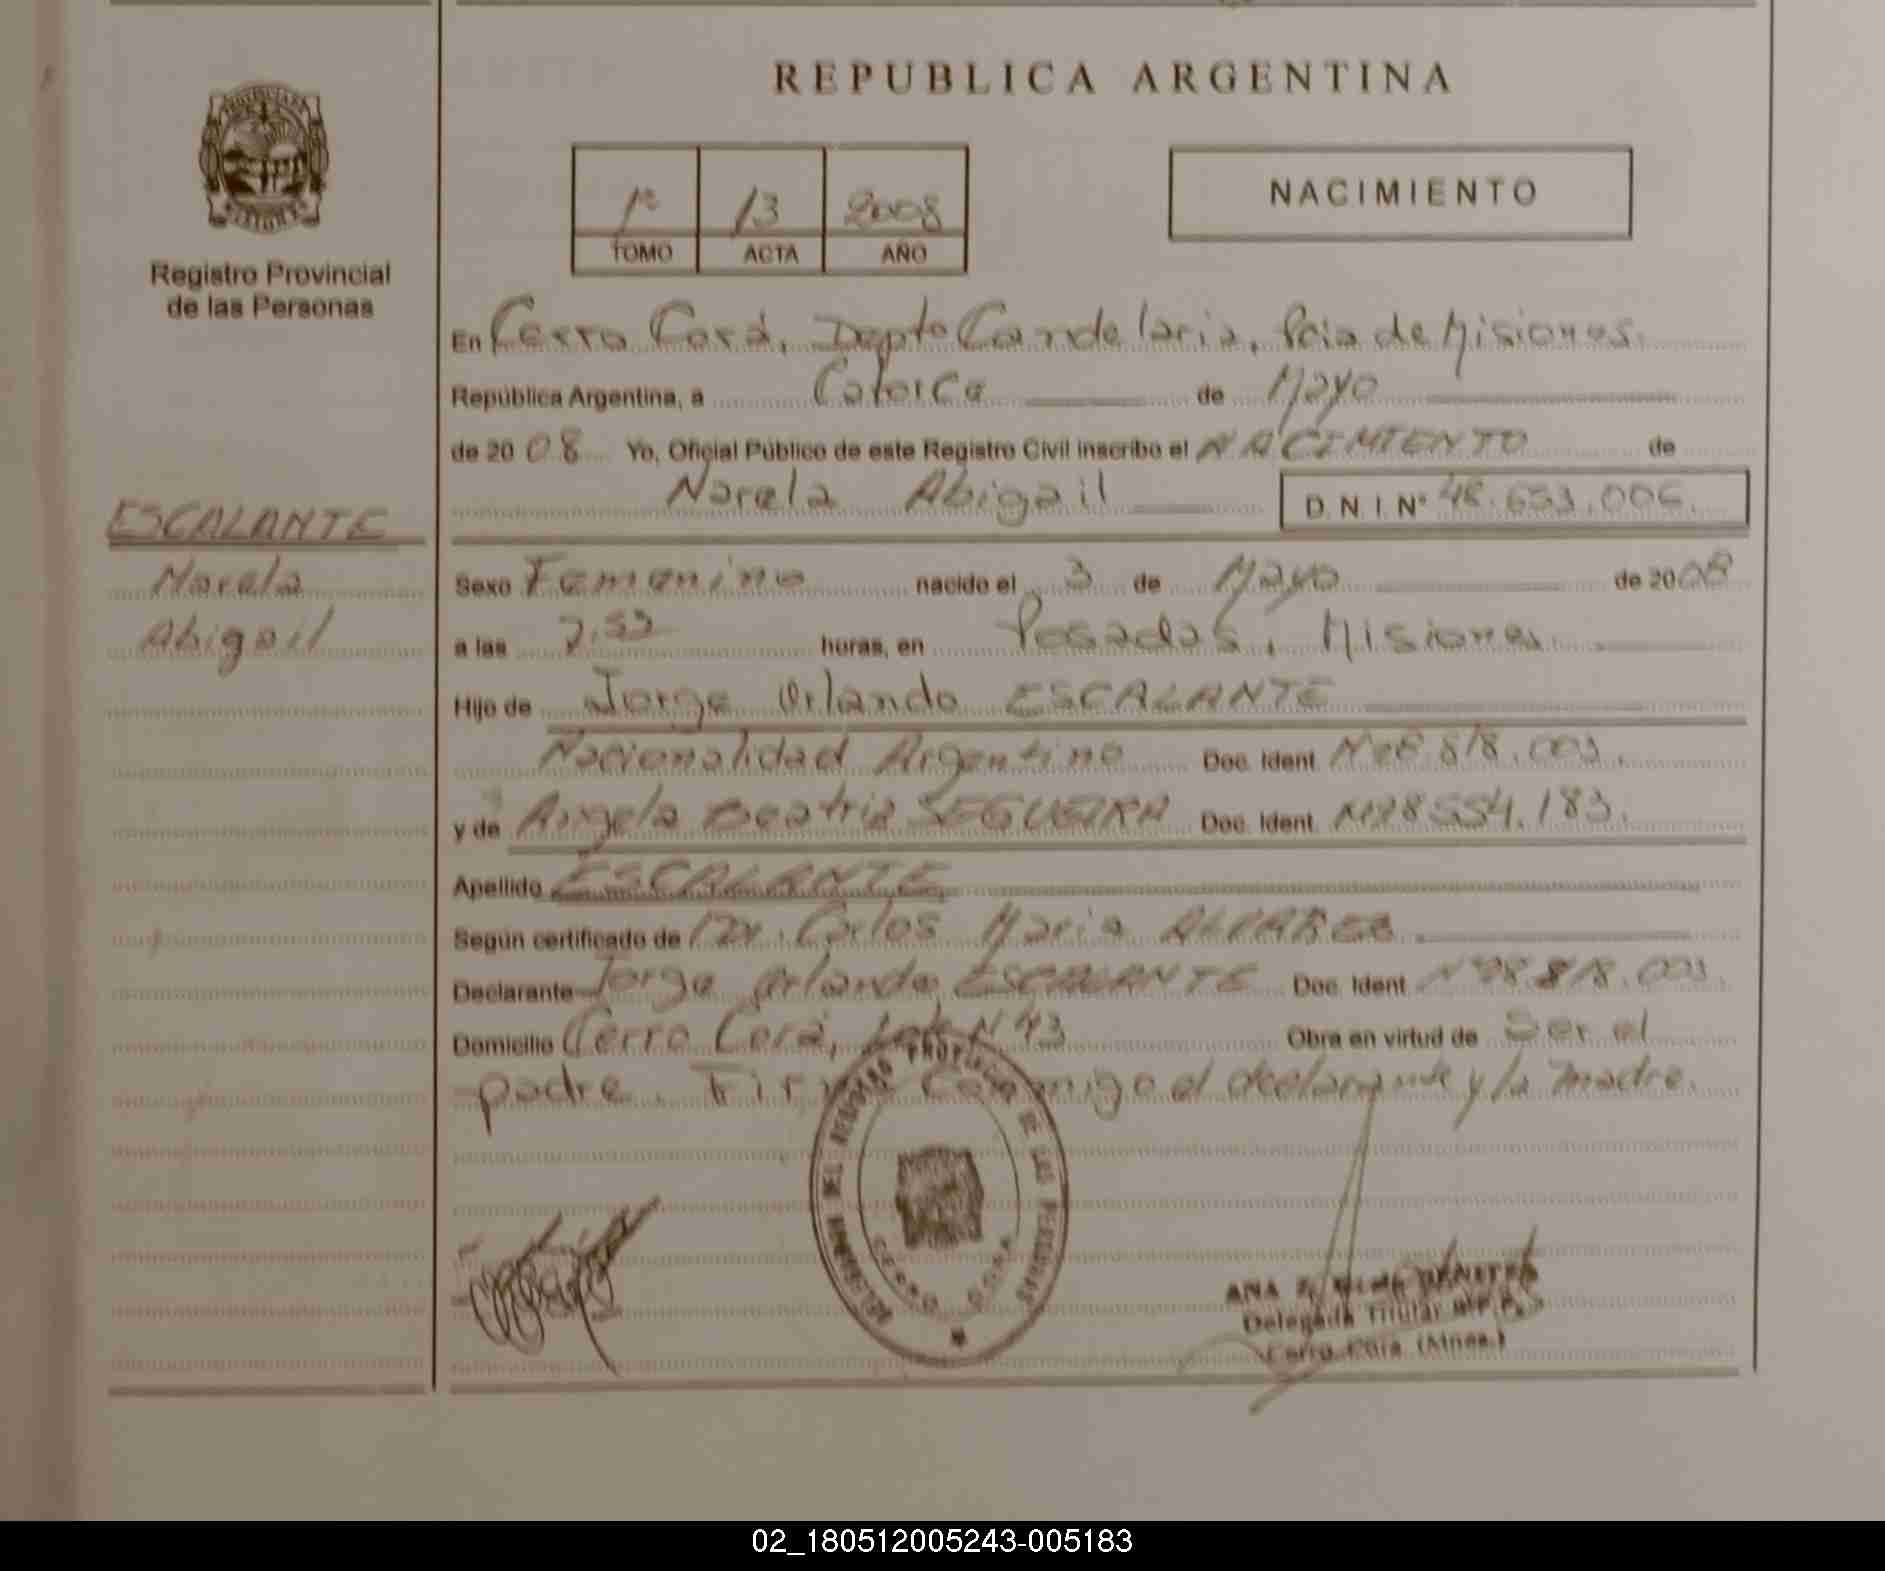 REPUBLICA ARGENTINA
Registro Provincial
de las Personas
1º 13 2008
TOMO ACTA AÑO
NACIMIENTO
En Cerro Corá, Depto Candelaria, Pcia de Misiones.
República Argentina, a Catorce de Mayo
de 2008 Yo, Oficial Público de este Registro Civil inscribo el NACIMIENTO de
Narela Abigail D.N.I. Nº 48.653.006.
ESCALANTE
Narela
Abigail
Sexo Femenino nacido el 3 de Mayo de 2008
a las horas, en Posadas, Misiones
Hijo de Jorge Orlando ESCALANTE
Nacionalidad Argentino Doc. Ident. Nº28.818.003.
y de Angela Beatriz SEGUEIRA Doc. Ident. Nº28554.183.
Apellido ESCALANTE
Según certificado de Dr. Carlos Maria ALVAREZ
Declarante Jorge Orlando ESCALANTE Doc. Ident. Nº28.818.003.
Domicilio Cerro Corá, Lote N 43 Obra en virtud de Ser el
padre. Firma Conmigo el declarante y la madre.
DEL REGISTRO PROVINCIAL DE LAS PERSONAS
CERRO CORA
ANA
Delegada Titular
Cerro Corá (Mnes.)
02_180512005243-005183